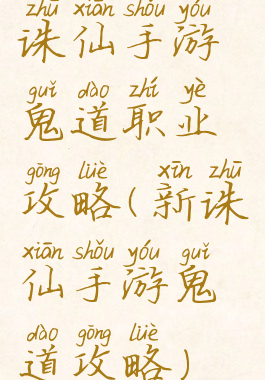 zhū xiān shǒu yóu
诛仙手游
guǐ dào zhí yè
鬼道职业
gōng lüè xīn zhū
攻略(新诛
xiān shǒu yóu guǐ
仙手游鬼
dào gōng lüè
道攻略)